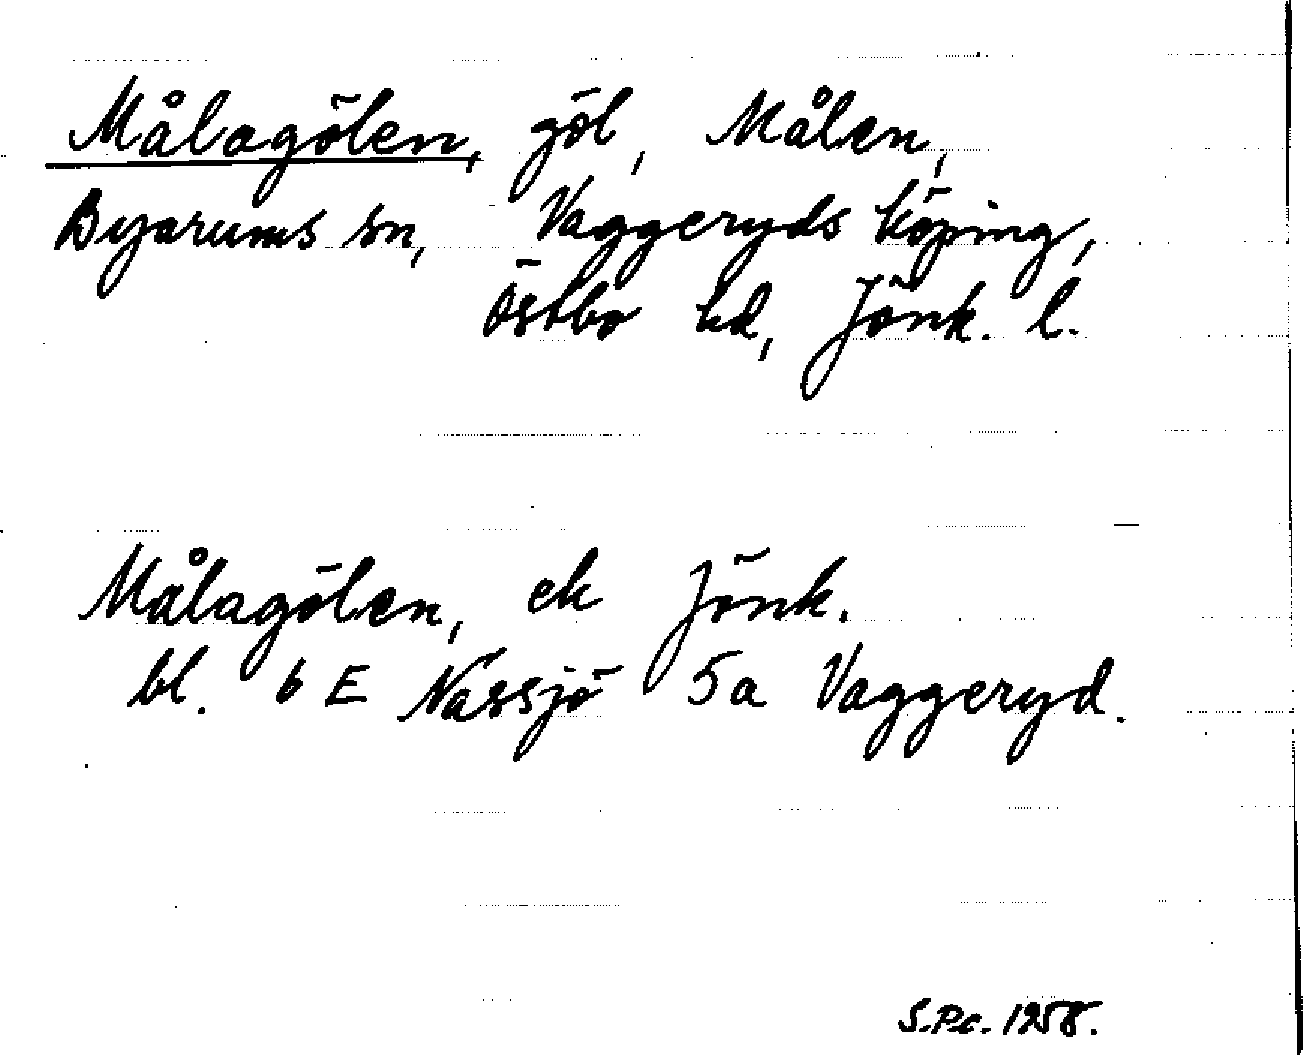 Målagölen, göl, Målen,
Byarums sn, Vaggeryds köping,
Östbo hd, Jönk. l.
Målagölen, ek Jönk.
bl. 6 E Nässjö 5a Vaggeryd.
S.Pc. 1958.